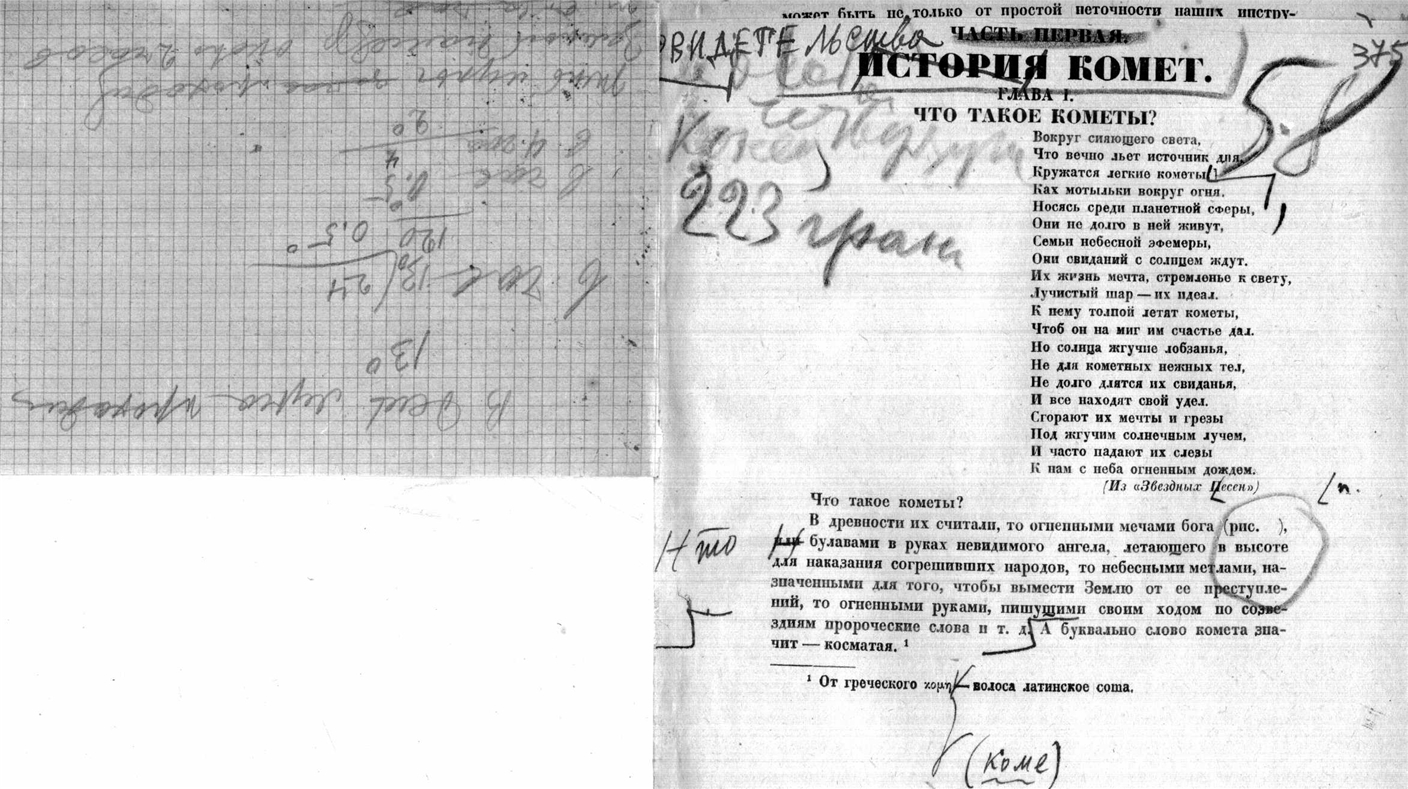 В день луна проходит
13°
В час 13°/24
120 0,5°
в час 0,5°
4
в 4 часа 2°
может быть не только от простой неточности наших инстру-
ВИДЕТЕЛЬства
ЧАСТЬ ПЕРВАЯ.
375
ИСТОРИЯ КОМЕТ.
58
ГЛАВА I.
ЧТО ТАКОЕ КОМЕТЫ?
223 гран
Вокруг сияющего света,
Что вечно льет источник дня,
Кружатся легкие кометы
Как мотыльки вокруг огня.
Носясь среди планетной сферы,
Они не долго в ней живут,
Семьи небесной эфемеры,
Они свиданий с солнцем ждут.
Их жизнь мечта, стремленье к свету,
Лучистый шар — их идеал.
К нему толпой летят кометы,
Чтоб он на миг им счастье дал.
Но солнца жгучие лобзанья,
Не для кометных нежных тел,
Не долго длятся их свиданья,
И все находят свой удел.
Сгорают их мечты и грезы
Под жгучим солнечным лучем,
И часто падают их слезы
К нам с неба огненным дождем.
(Из «Звездных Песен»)
п.
Что такое кометы?
В древности их считали, то огненными мечами бога (рис. ),
Н то
или булавами в руках невидимого ангела, летающего в высоте
для наказания согрешивших народов, то небесными метлами, на-
значенными для того, чтобы вымести Землю от ее преступле-
ний, то огненными руками, пишущими своим ходом по созве-
здиям пророческие слова и т. д. А буквально слово комета зна-
чит — косматая. ¹
¹ От греческого κομη — волоса латинское coma.
(коме)